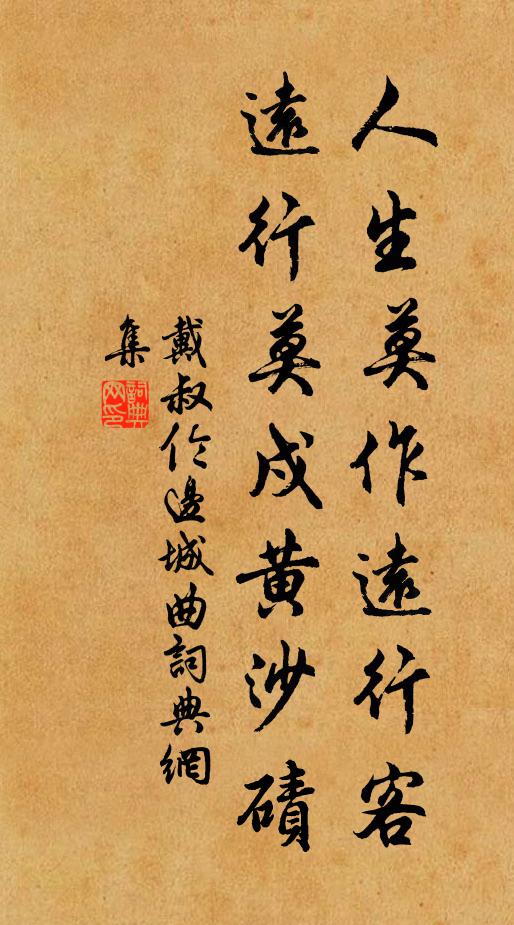 人生莫作遠行客
遠行莫戍黄沙磧
戴叔伦邊城曲詞典網
集
詞典
网印